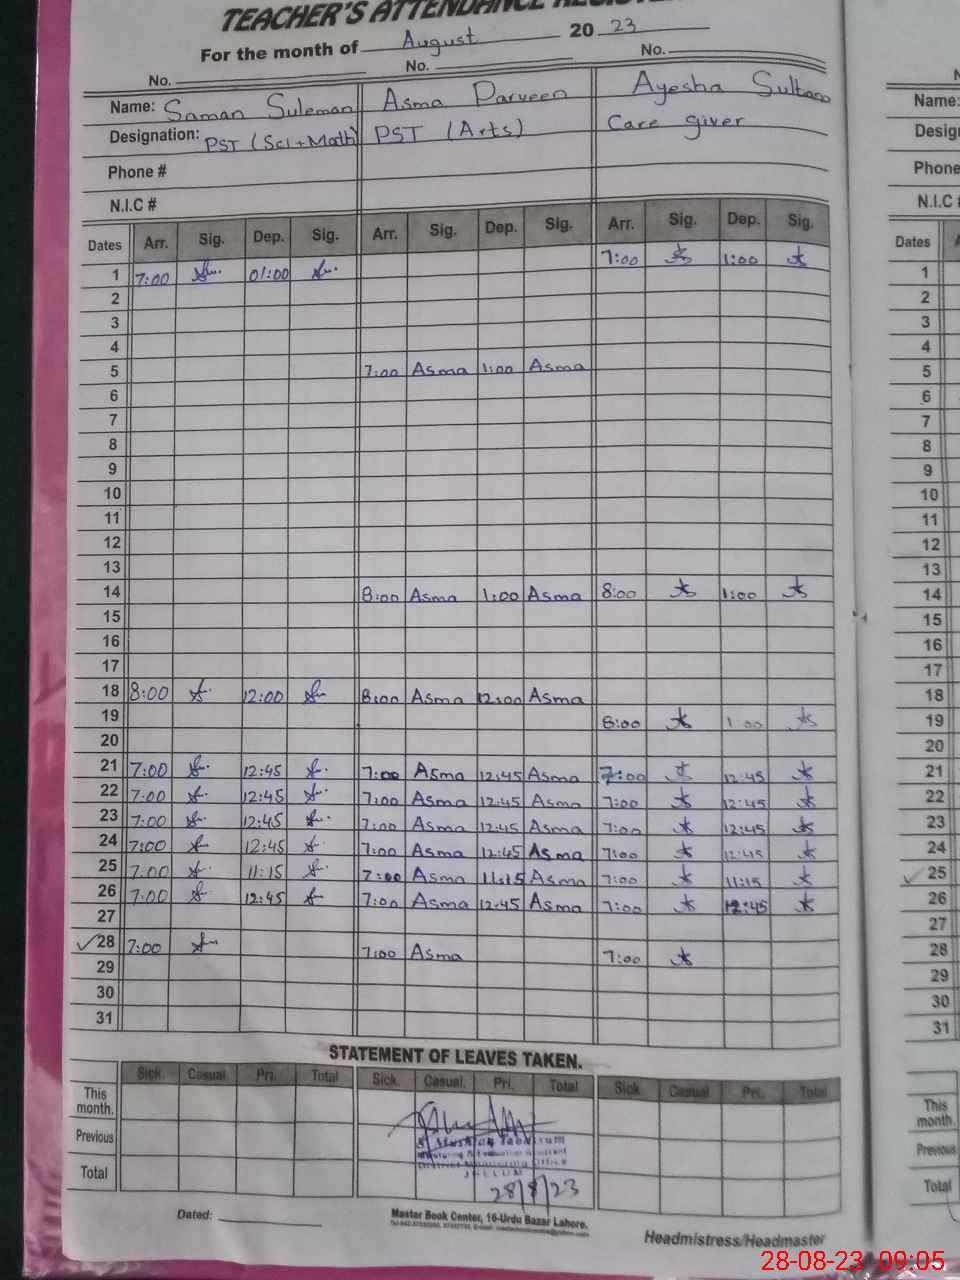 TEACHER'S ATTENDANCE REGISTER
For the month of August 20 23
No. No. No.
Name: Saman Suleman Asma Parveen Ayesha Sultana
Designation: PST (Sci+Math) PST (Arts) Care giver
Phone #
N.I.C #
Dates Arr. Sig. Dep. Sig. Arr. Sig. Dep. Sig. Arr. Sig. Dep. Sig.
1 7:00 01:00 7:00 1:00
2
3
4
5 7:00 Asma 1:00 Asma
6
7
8
9
10
11
12
13
14 8:00 Asma 1:00 Asma 8:00 1:00
15
16
17
18 8:00 12:00 8:00 Asma 12:00 Asma
19 8:00 1:00
20
21 7:00 12:45 7:00 Asma 12:45 Asma 7:00 12:45
22 7:00 12:45 7:00 Asma 12:45 Asma 7:00 12:45
23 7:00 12:45 7:00 Asma 12:45 Asma 7:00 12:45
24 7:00 12:45 7:00 Asma 12:45 Asma 7:00 12:45
25 7:00 11:15 7:00 Asma 11:15 Asma 7:00 11:15
26 7:00 12:45 7:00 Asma 12:45 Asma 7:00 12:45
27
28 7:00 7:00 Asma 7:00
29
30
31
STATEMENT OF LEAVES TAKEN.
Sick. Casual. Pri. Total Sick. Casual. Pri. Total Sick. Casual. Pri. Total
This month.
Previous
Total
JHELUM
28/8/23
Dated:
Master Book Center, 16-Urdu Bazar Lahore.
Headmistress/Headmaster
Name:
Phone
N.I.C #
Dates
1
2
3
4
5
6
7
8
9
10
11
12
13
14
15
16
17
18
19
20
21
22
23
24
25
26
27
28
29
30
31
This month.
Previous
Total
28-08-23 09:05